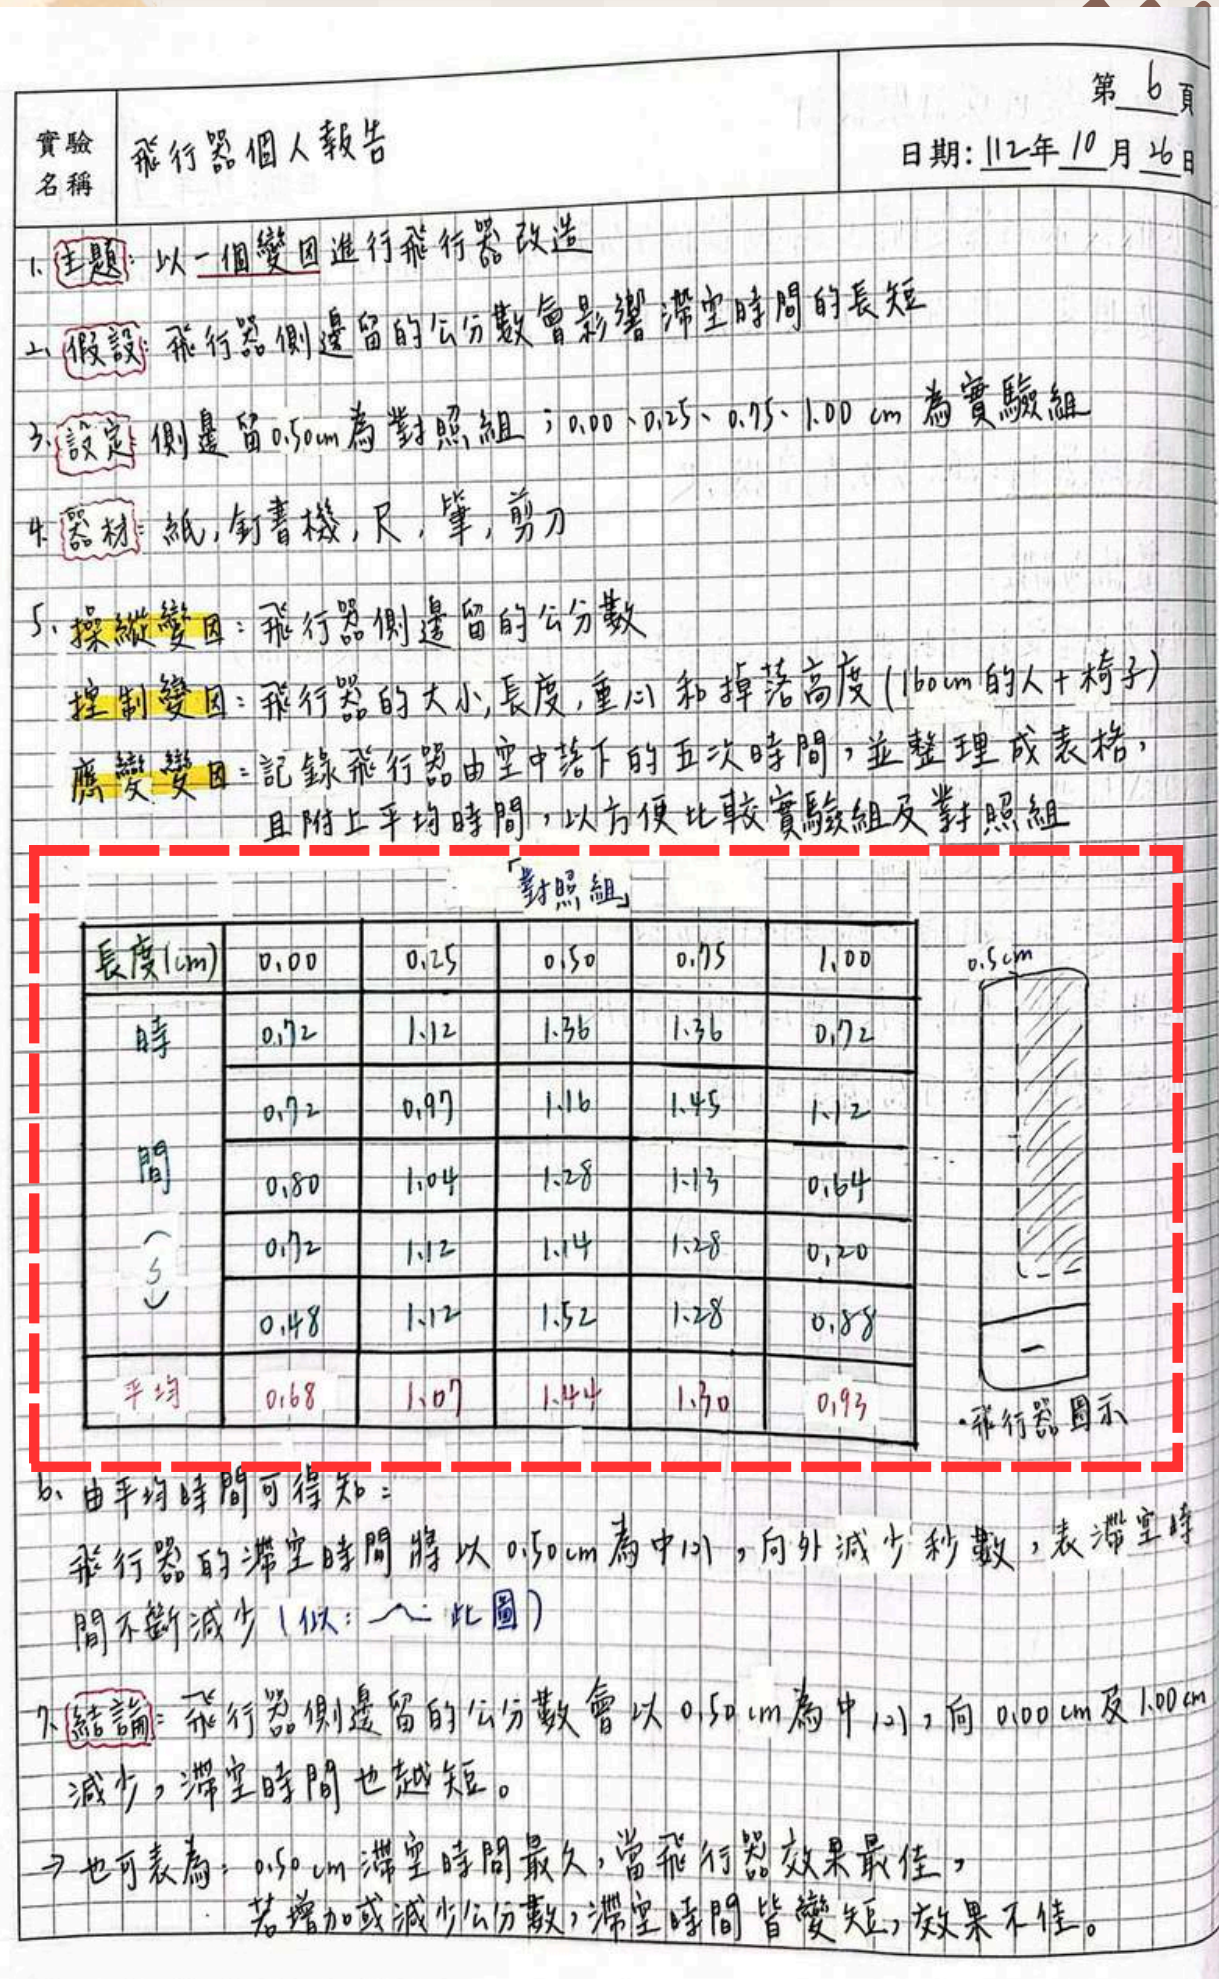 第 6 頁
實驗名稱
飛行器個人報告
日期：112年10月26日
1. 主題：以一個變因進行飛行器改造
2. 假設：飛行器側邊留的公分數會影響滯空時間的長短
3. 設定：側邊留0.50cm為對照組；0.00、0.25、0.75、1.00 cm 為實驗組
4. 器材：紙,釘書機,尺,筆,剪刀
5. 操縱變因：飛行器側邊留的公分數
控制變因：飛行器的大小,長度,重心和掉落高度(160cm的人+椅子)
應變變因：記錄飛行器由空中落下的五次時間，並整理成表格，
且附上平均時間，以方便比較實驗組及對照組
「對照組」
長度(cm) 0.00 0.25 0.50 0.75 1.00
時間(s) 0.72 1.12 1.36 1.36 0.72
0.72 0.97 1.16 1.45 1.12
0.80 1.04 1.28 1.13 0.64
0.72 1.12 1.14 1.28 0.20
0.48 1.12 1.52 1.28 0.88
平均 0.68 1.07 1.44 1.30 0.93
0.5cm
・飛行器圖示
6. 由平均時間可得知：
飛行器的滯空時間將以0.50cm為中心，向外減少秒數，表滯空時
間不斷減少(似： 此圖)
7. 結論：飛行器側邊留的公分數會以0.50cm為中心，向0.00cm及1.00cm
減少，滯空時間也越短。
→也可表為：0.50cm滯空時間最久，當飛行器效果最佳，
若增加或減少公分數，滯空時間皆變短，效果不佳。